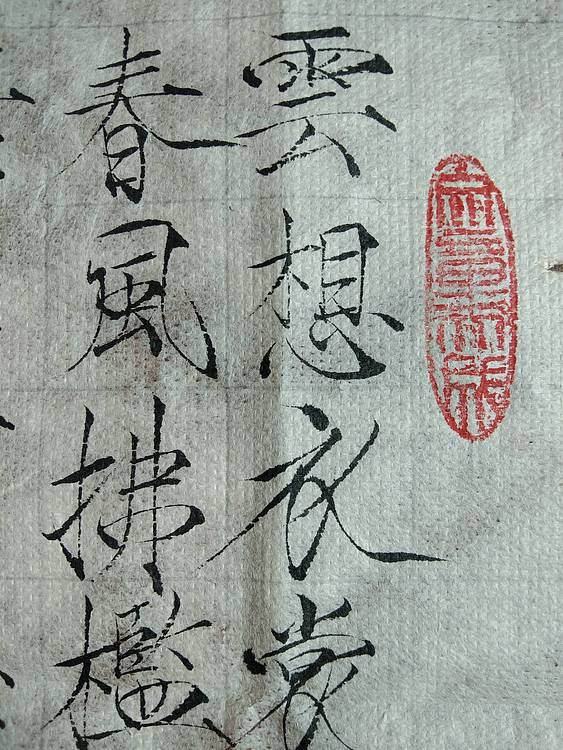 雲想衣裳
春風拂檻